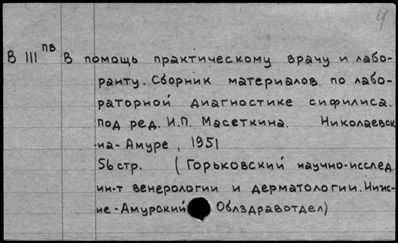 4
В III ПВ В помощь практическому врачу и лабо-
ранту. Сборник материалов по лабо-
раторной диагностике сифилиса.
Под ред. И.П. Масеткина. Николаевск
-на-Амуре, 1951
56 стр. (Горьковский научно-исслед.
ин-т венерологии и дерматологии. Ниж-
не-Амурский Облздравотдел)